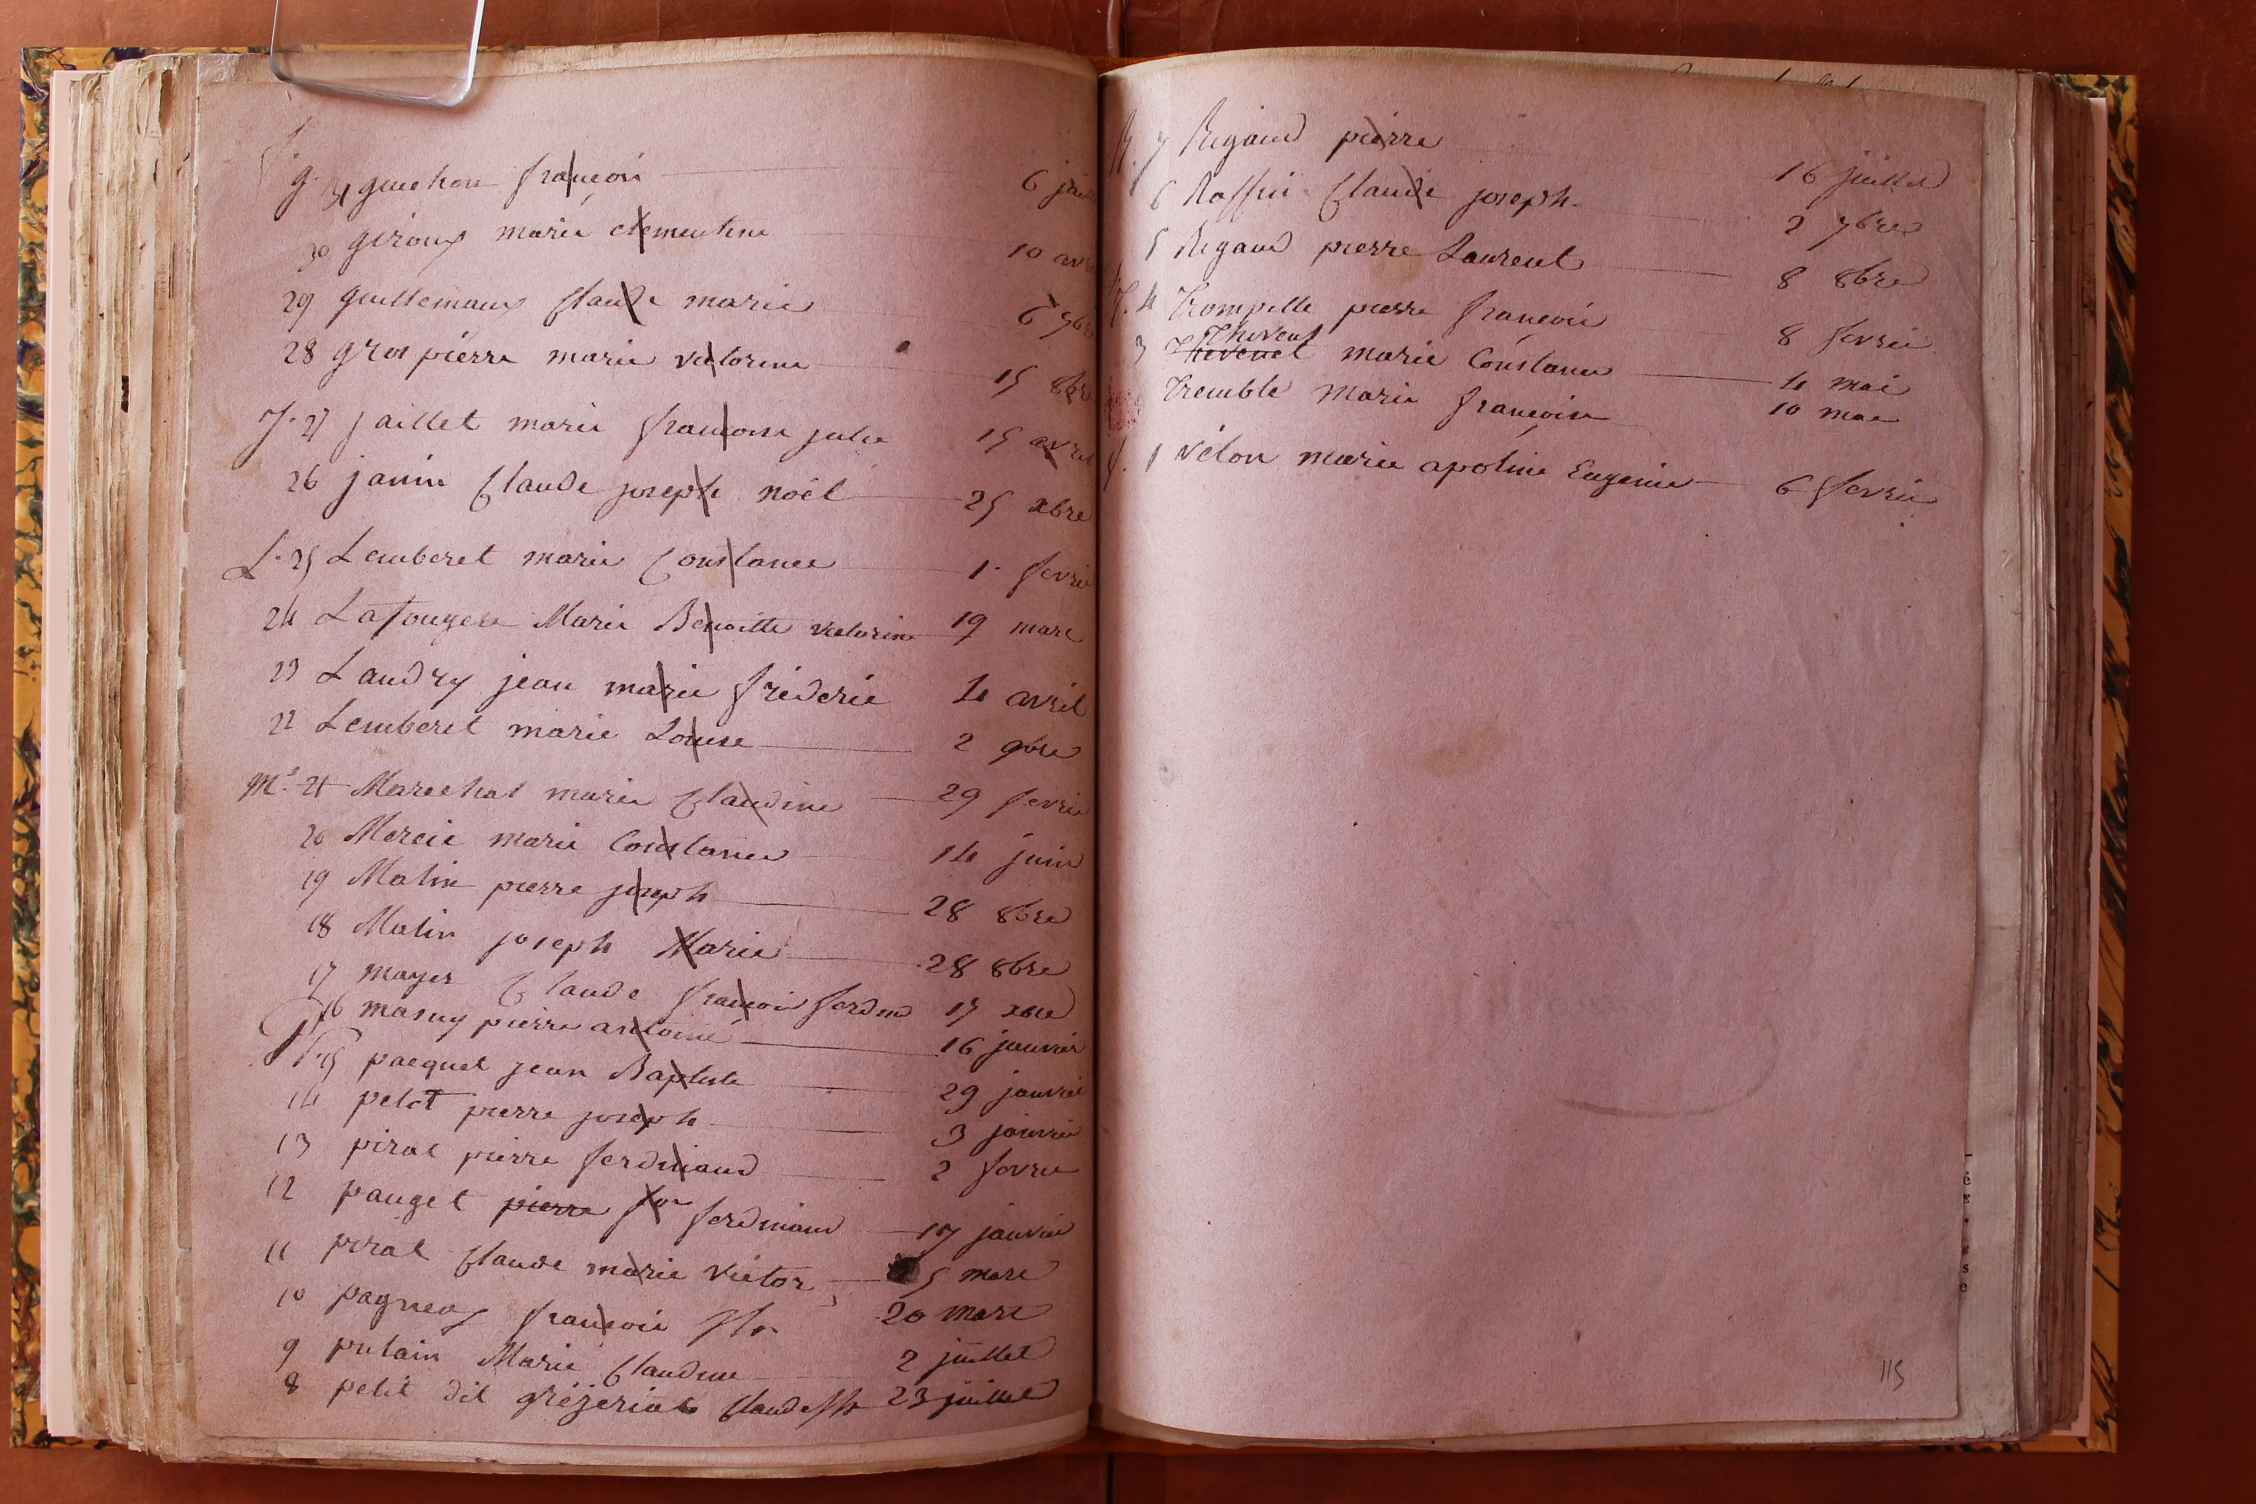 g. 31 guichon françois 6
30 giroux marie clementine 10 avr
29 guillemaux Claude marie 6 7bre
28 gros pierre marie victorine 15 8bre
J. 27 jaillet marie francoise julie 15 avril
26 janin Claude joseph noël 25 xbre
L. 25 Lemberet marie Constance 1. fevrie
24 Lafougere Marie Benoitte victorine 19 mars
23 Landry jean marie fréderic 4 avril
22 Lemberet marie Louise 2 9bre
M. 21 Marechal marie Claudine 29 fevrie
20 Mercie marie Constance 14 juin
19 Matin pierre joseph 28 8bre
18 Matin joseph Marie 28 8bre
17 mayer Claude francois ferdnd 17 xbre
16 masuy pierre antoine 16 janvier
P. 15 pacquet jean Baptiste 29 janvier
14 petot pierre joseph 3 janvier
13 pirat pierre ferdinand 2 fevrie
12 pauget pierre for ferdinand 17 janvier
11 pirat Claude marie victor 5 mars
10 pagneux francois 20 mars
9 putain Marie Claudine 2 juillet
8 petit dit Claude 23 juillet
R. 7 Rigaud pierre 16 juillet
6 Raffin Claude joseph 2 7bre
5 Rigaud pierre Laurent 8 8bre
T. 4 Trompille pierre francois 8 fevrie
Thevenet
3 Thevenet marie Constance 4 mai
Tremble Marie francoise 10 mai
V. 1 vélon marie apoline Eugenie 6 fevrie
115